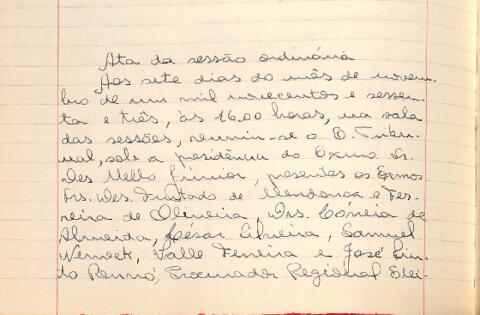 Ata da sessão ordinária
Aos sete dias do mês de novem-
bro de um mil novecentos e sessen-
ta e três, às 16.00 horas, na sala
das sessões, reuniu-se o E. Tribu-
nal, sob a presidência do Exmo Sr.
Des Mello Júnior, presentes os Exmos
Srs. Des. Furtado de Mendonça e Fer-
reira de Oliveira, Drs. Corrêia de
Almeida, César Silveira, Samuel
Werneck, Valle Ferreira e José Pin-
to Rennó, Procurador Regional Elei-